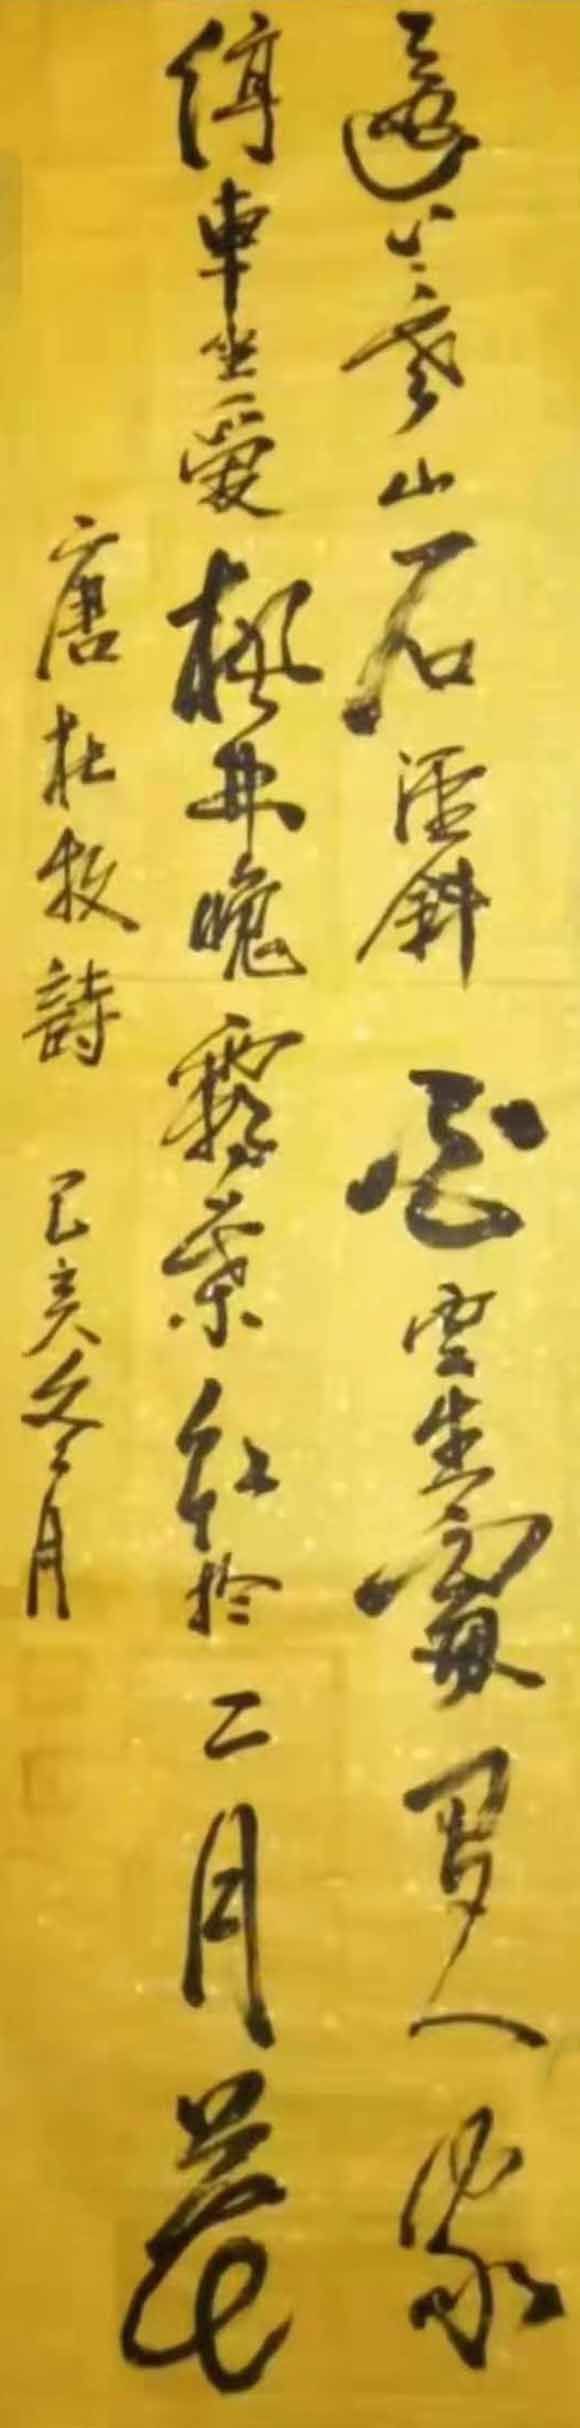 遠上寒山石徑斜白雲生處有人家
停車坐愛楓林晚霜葉紅於二月花
唐杜牧詩 己亥冬月